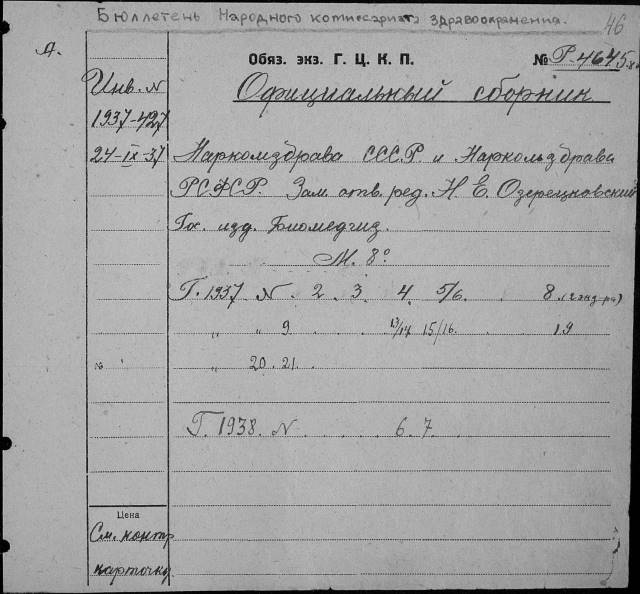 Бюллетень Народного комиссариата здравоохранения.
46
А.
Обяз. экз. Г. Ц. К. П.
№ Р-4645
Инв. N
1937-427
24-IX-37
Официальный сборник
Наркомздрава СССР. и Наркомздрава
РСФСР. Зам. отв. ред. Н. Е. Озерецковский
Гос. изд. Биомедгиз.
М. 8°
Г. 1937 N. 2. 3. 4. 5/6. 8
" " 9. 13/14 15/16. 19
№ " 20. 21.
Г. 1938. N 6. 7.
Цена
См. контр
карточку